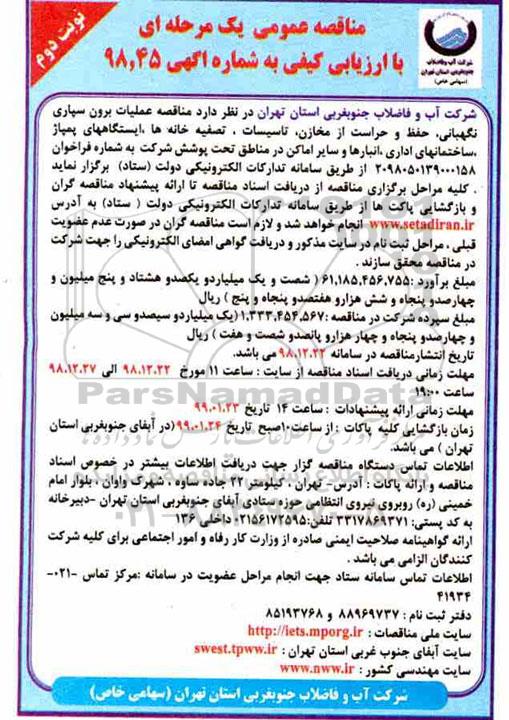 نوبت دوم
مناقصه عمومی یک مرحله ای
با ارزیابی کیفی به شماره آگهی ۹۸,۴۵
شرکت آب و فاضلاب
جنوبغربی استان تهران
(سهامی خاص)
شرکت آب و فاضلاب جنوبغربی استان تهران در نظر دارد مناقصه عملیات برون سپاری
نگهبانی، حفظ و حراست از مخازن، تاسیسات ، تصفیه خانه ها ،ایستگاههای پمپاژ
،ساختمانهای اداری ،انبارها و سایر اماکن در مناطق تحت پوشش شرکت به شماره فراخوان
۲۰۹۸۰۵۰۱۳۹۰۰۰۱۵۸ از طریق سامانه تدارکات الکترونیکی دولت (ستاد) برگزار نماید
. کلیه مراحل برگزاری مناقصه از دریافت اسناد مناقصه تا ارائه پیشنهاد مناقصه گران
و بازگشایی پاکت ها از طریق سامانه تدارکات الکترونیکی دولت ( ستاد) به آدرس
www.setadiran.ir انجام خواهد شد و لازم است مناقصه گران در صورت عدم عضویت
قبلی ، مراحل ثبت نام در سایت مذکور و دریافت گواهی امضای الکترونیکی را جهت شرکت
در مناقصه محقق سازند .
مبلغ برآورد :۶۱,۱۸۵,۴۵۶,۷۵۵ ( شصت و یک میلیاردو یکصدو هشتاد و پنج میلیون و
چهارصدو پنجاه و شش هزارو هفتصدو پنجاه و پنج ) ریال
مبلغ سپرده شرکت در مناقصه :۱,۳۳۳,۴۵۴,۵۶۷(یک میلیاردو سیصدو سی و سه میلیون
و چهارصدو پنجاه و چهار هزارو پانصدو شصت و هفت ) ریال
تاریخ انتشارمناقصه در سامانه ۹۸,۱۲,۲۲ می باشد.
مهلت زمانی دریافت اسناد مناقصه از سایت : ساعت ۱۱ مورخ ۹۸,۱۲,۲۲ الی ۹۸,۱۲,۲۷
ساعت ۱۹:۰۰
مهلت زمانی ارائه پیشنهادات : ساعت ۱۴ تاریخ ۹۹,۰۱,۲۳
زمان بازگشایی کلیه پاکات : از ساعت۱۰صبح تاریخ ۹۹,۰۱,۲۴(در آبفای جنوبغربی استان
تهران ) می باشد.
اطلاعات تماس دستگاه مناقصه گزار جهت دریافت اطلاعات بیشتر در خصوص اسناد
مناقصه و ارائه پاکات : آدرس- تهران ، کیلومتر ۲۲ جاده ساوه ، شهرک واوان، بلوار امام
خمینی (ره) روبروی نیروی انتظامی، حوزه ستادی آبفای جنوبغربی استان تهران -دبیرخانه
به کد پستی: ۳۳۱۷۸۶۹۳۷۱ تلفن:۰۲۱۵۶۱۷۲۵۹۵ داخلی ۱۳۶
ارائه گواهینامه صلاحیت ایمنی صادره از وزارت کار رفاه و امور اجتماعی برای کلیه شرکت
کنندگان الزامی می باشد .
اطلاعات تماس سامانه ستاد جهت انجام مراحل عضویت در سامانه :مرکز تماس -۰۲۱
۴۱۹۳۴
دفتر ثبت نام : ۸۸۹۶۹۷۳۷ و ۸۵۱۹۳۷۶۸
سایت ملی مناقصات : http://iets.mporg.ir
سایت آبفای جنوب غربی استان تهران : swest.tpww.ir
سایت مهندسی کشور : www.nww.ir
شرکت آب و فاضلاب جنوبغربی استان تهران (سهامی خاص)
ParsNamadData